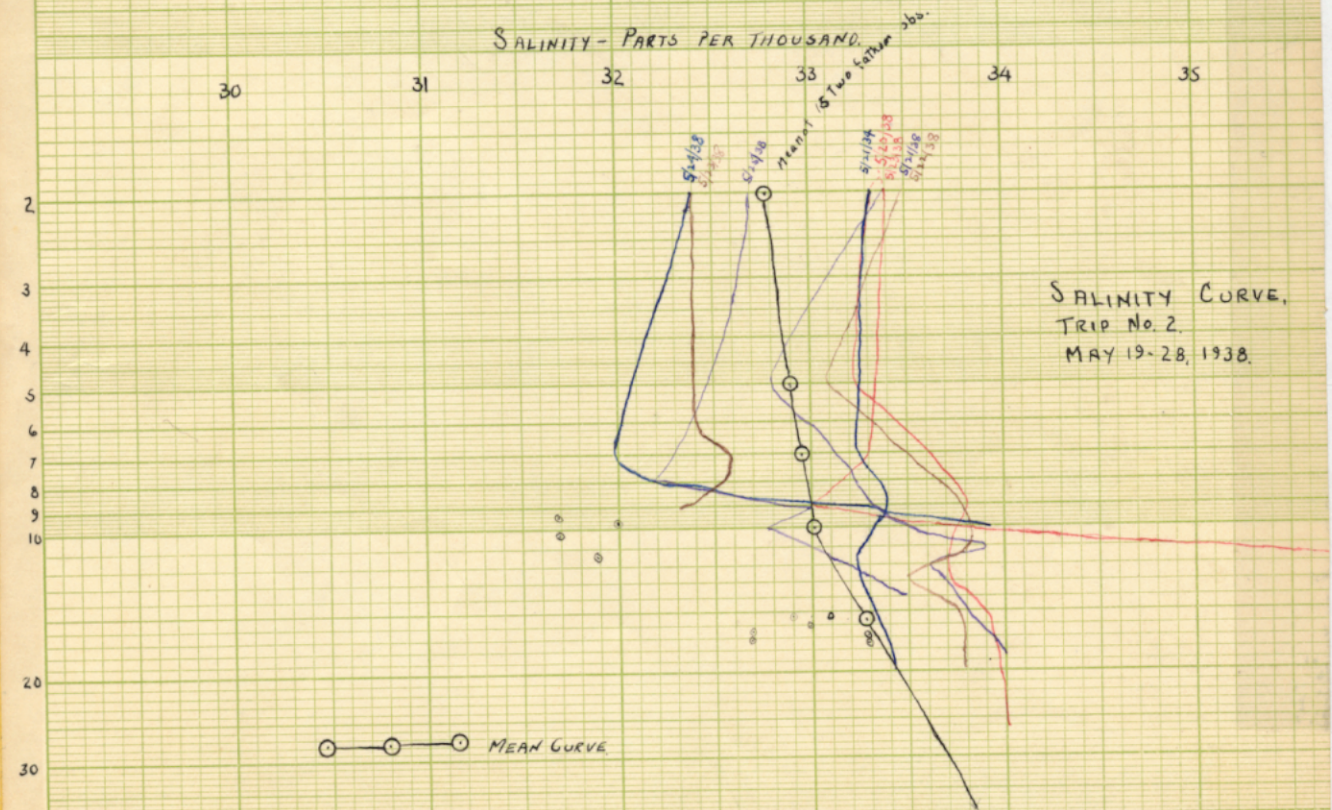 SALINITY - PARTS PER THOUSAND.
30 31 32 33 34 35
Mean of 15 Two fathom obs.
5/24/38
5/26/38
5/20/38
5/23/38
5/21/38
5/22/38
2
3
4
5
6
7
8
9
10
20
30
SALINITY CURVE,
TRIP NO. 2.
MAY 19-28, 1938.
MEAN CURVE